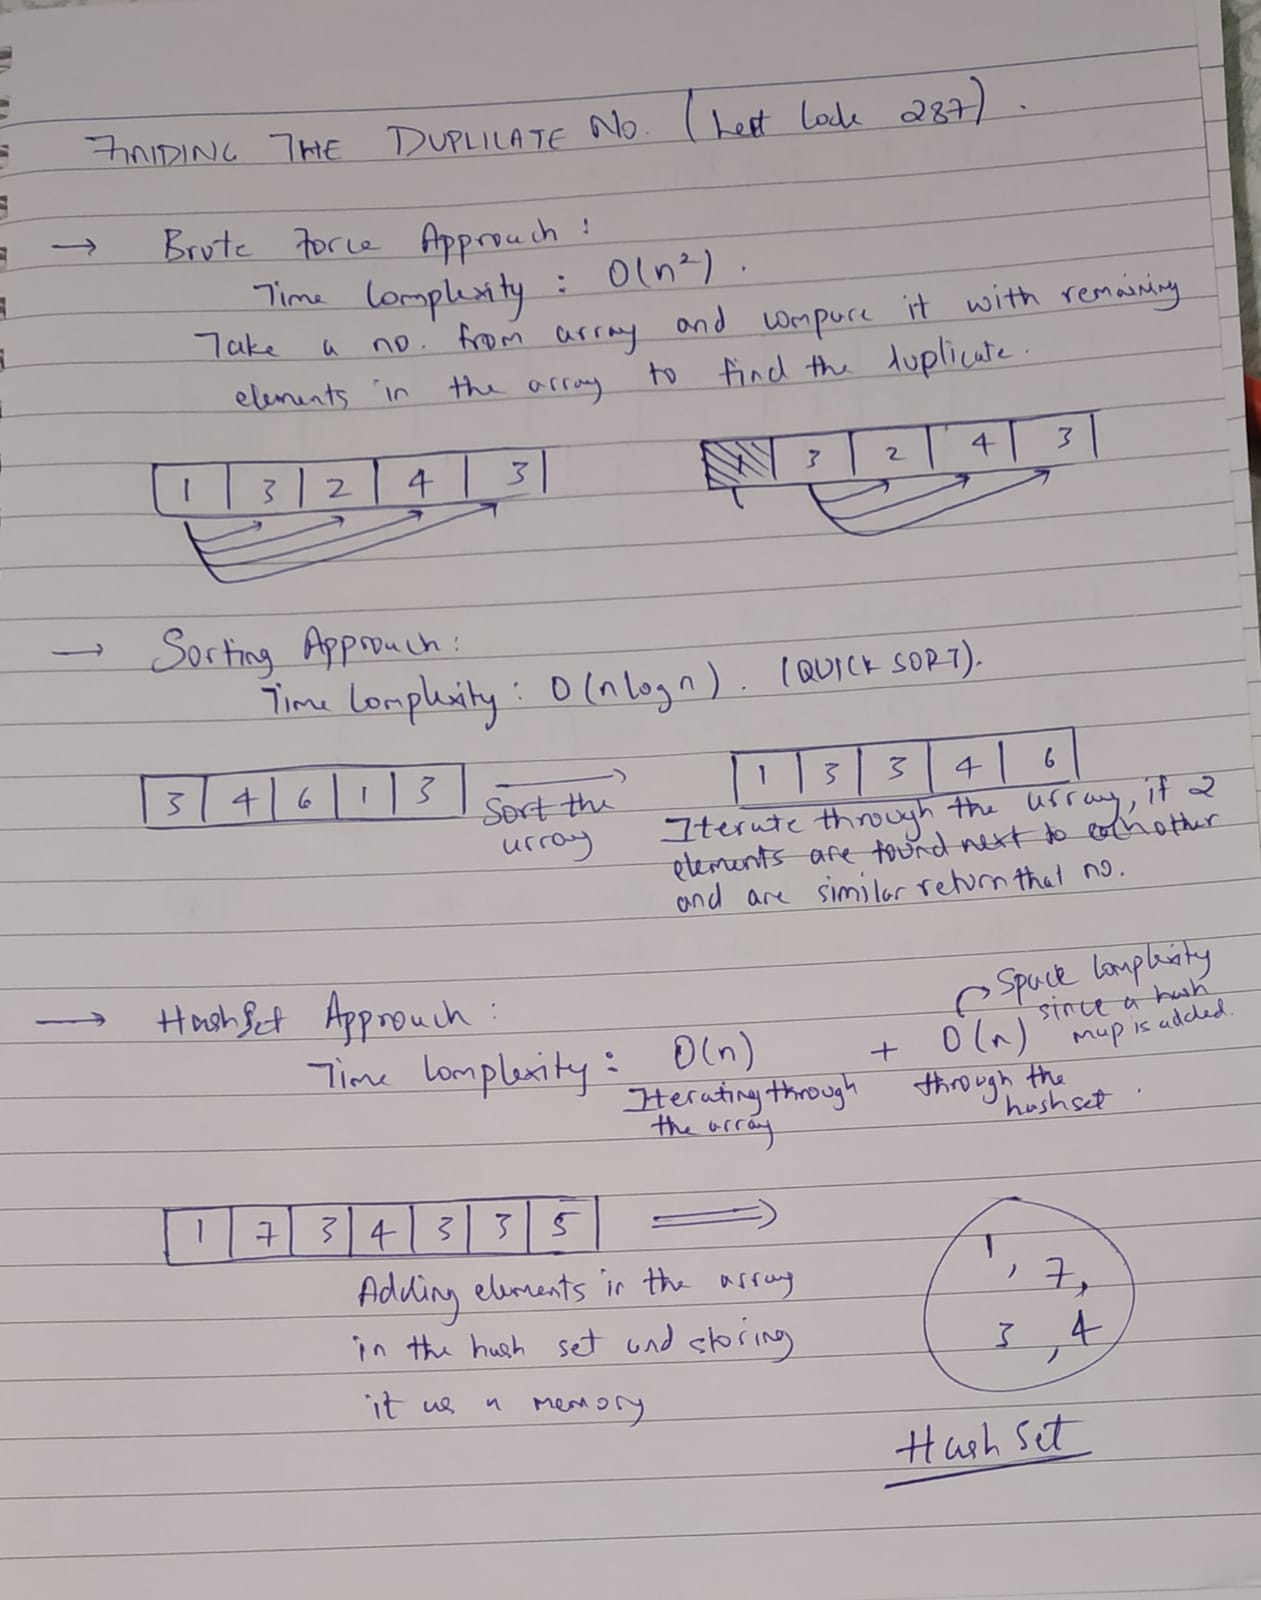 FINDING THE DUPLICATE No. (Leet Code 287).
→ Brute Force Approach:
Time Complexity : O(n²).
Take a no. from array and compare it with remaining
elements in the array to find the duplicate.
1 3 2 4 3
1 3 2 4 3
→ Sorting Approach:
Time Complexity : O(nlogn). (QUICK SORT).
3 4 6 1 3
Sort the
array
1 3 3 4 6
Iterate through the array, if 2
elements are found next to eachother
and are similar return that no.
→ HashSet Approach:
Time Complexity : O(n) + O(n)
Iterating through
the array
through the
hashset.
Space Complexity
since a hash
map is added.
1 7 3 4 3 3 5 ⇒
Adding elements in the array
in the hash set and storing
it as a memory
1, 7,
3, 4
Hash Set